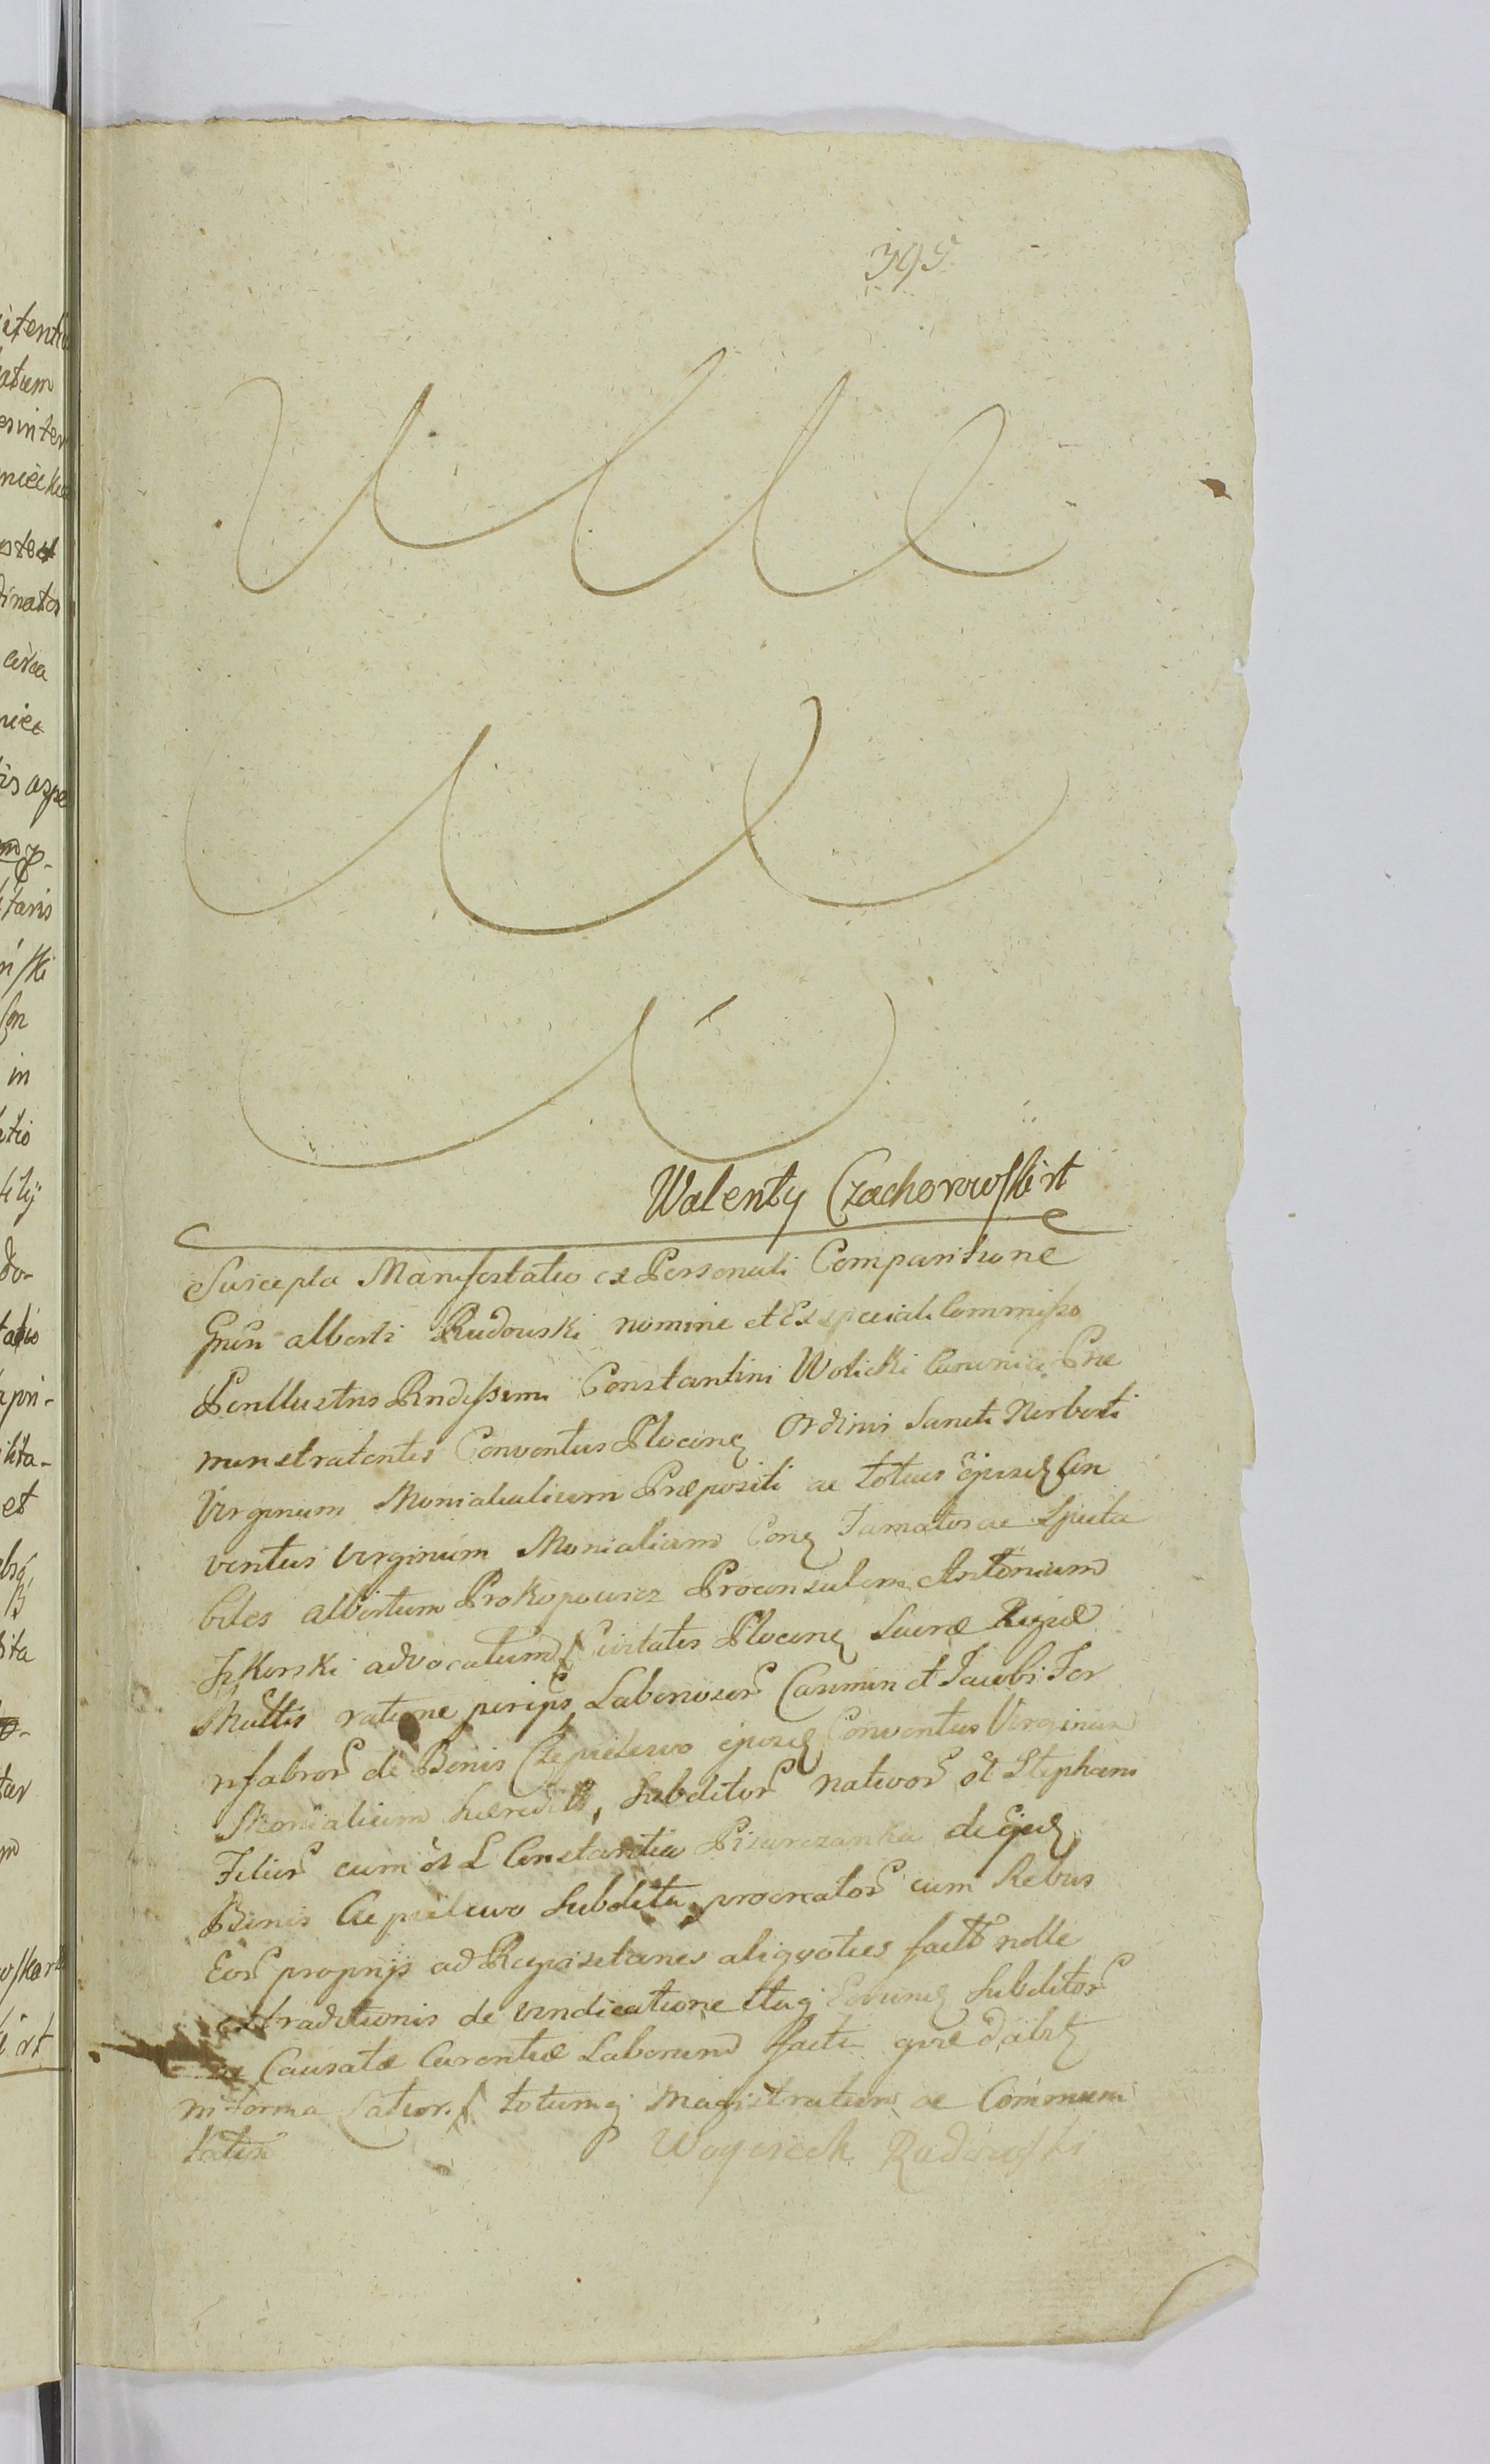 395
Walenty Czachorowski rt
Suscepta Manifestatio ex Personali Comparitione
Gnsi alberti Rudowski nomine et Ex speciali Commisso
Perillustris Rndissimi Constantini Wolicki Canonici Præ
monstratentis Conventus Plocens Ordinis Sancti Norberti
Virginum Monialium Præpositi ac totius Ejusd Con
ventus Virginum Monialium Con Famatos ac Specta
biles albertum Prokopowicz Proconsulem Antonium
advocatum Civitatis Plocens Sacræ Regiæ
Mattis ratione Laboriosor Casimiri et Jacobi
nfabror de Bonis ejusd Conventus Virginum
Monialium hæredit, Subditor nativor et Stephani
Filior cum ol L Constantia Pisarczanka de Ejusd
Bonis Subdita, procreator cum Rebus
Eor propriis ad aliquoties fact nolle
extraditionis de Vindicatione Eorund Subditor
ac Causatæ Carentiæ Laborum facti
in forma Latior. totumq Magistratum ac Communi
tatem
Woyciech Rudowski
itentia
atum
dinator
circa
taris
in
et
rt